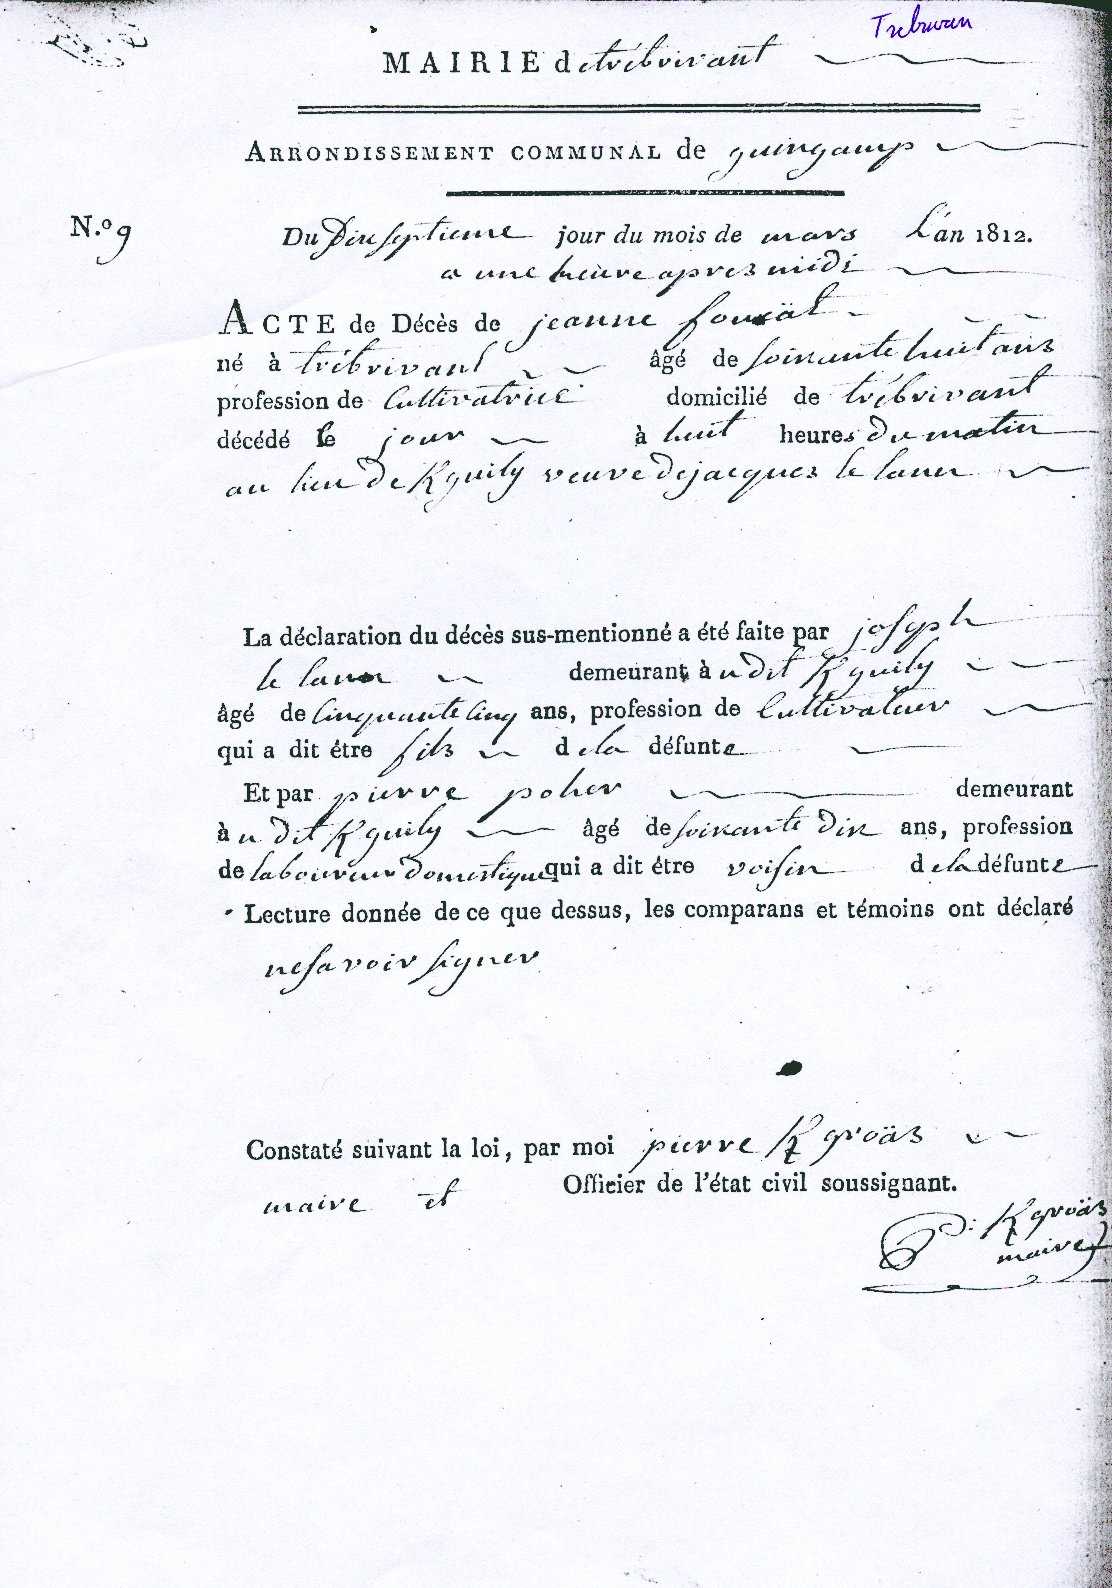 Trebrivan
MAIRIE de trébrivant
ARRONDISSEMENT COMMUNAL de guingamp
N.º 9
Du Dixseptieme jour du mois de mars L'an 1812.
a une heure apres midi
ACTE de Décès de jeanne
né à trébrivant âgé de soixante huit ans
profession de Cultivatrice domicilié de trébrivant
décédé le jour à huit heures du matin
au lieu de Kguily veuve de jacques le laner
La déclaration du décès sus-mentionné a été faite par joseph
le laner demeurant à u dit Kguily
âgé de Cinquante Cinq ans, profession de Cultivateur
qui a dit étre fils de la défunte
Et par pierre poher demeurant
à u dit Kguily âgé de soixante dix ans, profession
de laboureur domestique qui a dit étre voisin de la défunte
Lecture donnée de ce que dessus, les comparans et témoins ont déclaré
ne savoir signer
Constaté suivant la loi, par moi pierre Kgroäs
maire et Officier de l'état civil soussignant.
P: Kgroäs
maire